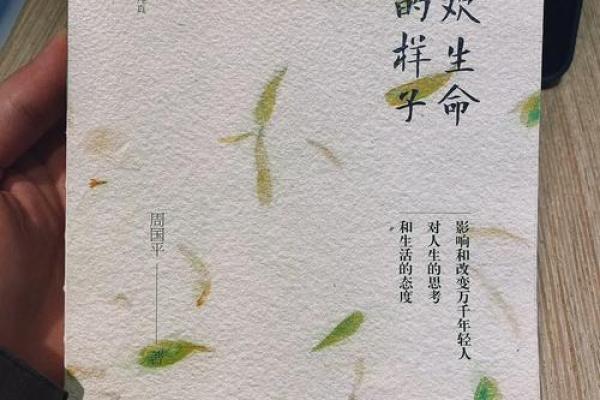 欢生命
的样子
影响和改变万千年轻人
对人生的思考
和生活的态度
周国平
著